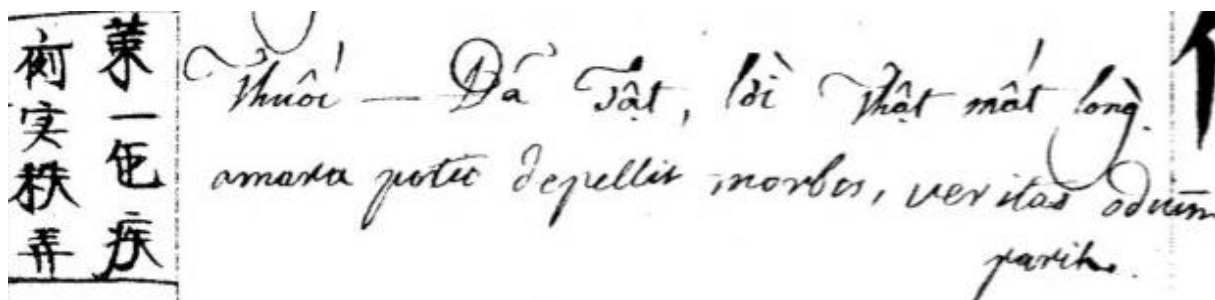 一㐌疾
实秩弄
Thuốc — Đã Tật, lời Thật mất lòng.
amara potio depellit morbos, veritas odium
parit.